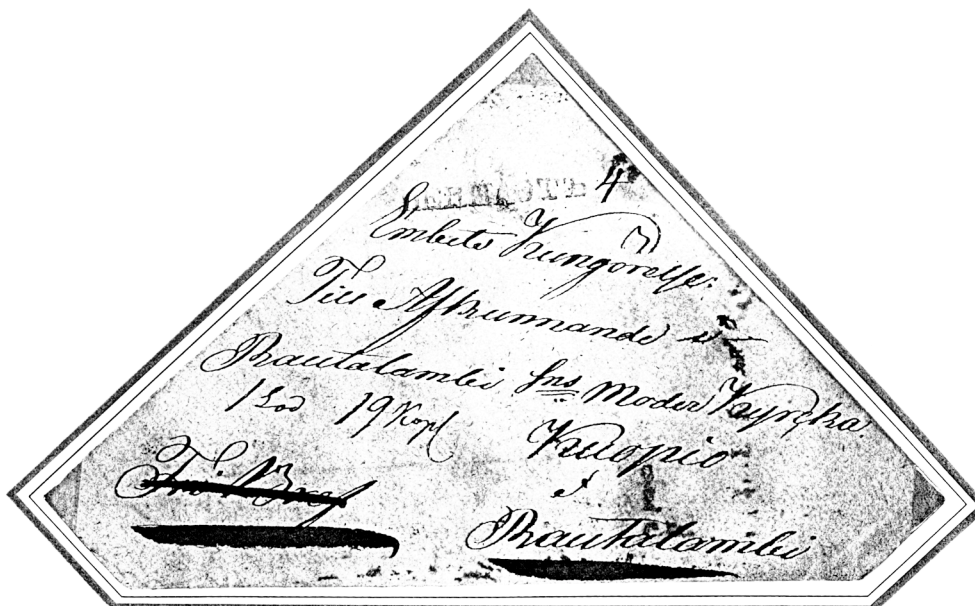 4
Embets Kungörelse.
Till Afkunnande i
Rautalambi Sns Moder Kyrcka
1 Lod 19 Kop
Kuopio
Rautalambi